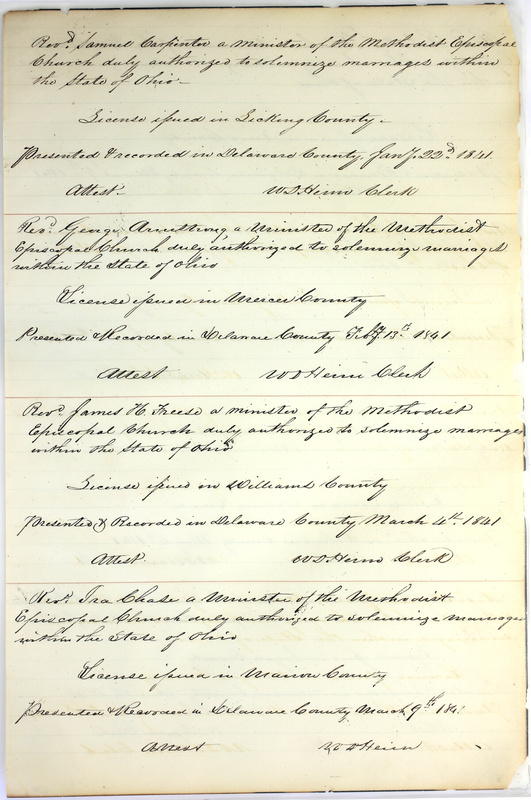 Revd. Samuel Carpenter a Minister of the Methodist Episcopal
Church duly authorized to solemnize marriages within
the State of Ohio
License issued in Licking County.
Presented & recorded in Delaware County, Jany. 22d. 1841.
Attest. W D Heim Clerk
Revd. George Armstrong a Minister of the Methodist
Episcopal Church duly authorized to solemnize marriages
within the State of Ohio
License issued in Mercer County
Presented & Recorded in Delaware County Feby. 13th. 1841
Attest W D Heim Clerk
Revd. James H. Freese a minister of the Methodist
Episcopal Church duly authorized to solemnize marriages
within the State of Ohio
License issued in Williams County
Presented & Recorded in Delaware County March 4th. 1841
Attest. W D. Heim Clerk
Revd. Ira Chase a Minister of the Methodist
Episcopal Church duly authorized to solemnize marriage
within the State of Ohio
License issued in Marion County
Presented & Recorded in Delaware County March 9th. 184
Attest W D Heim